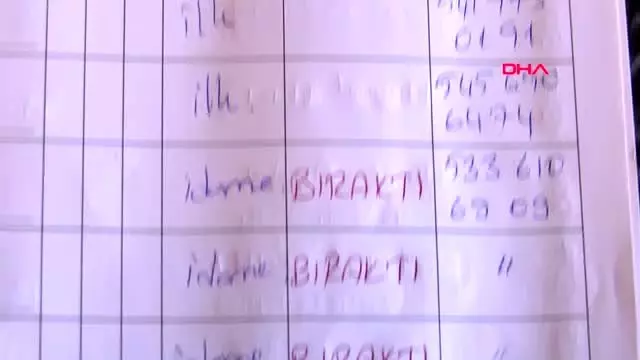 ilk
0191
DHA
ilk
545 690
6474
idame BIRAKTI 533 610
69 09
idame BIRAKTI "
idame BIRAKTI "